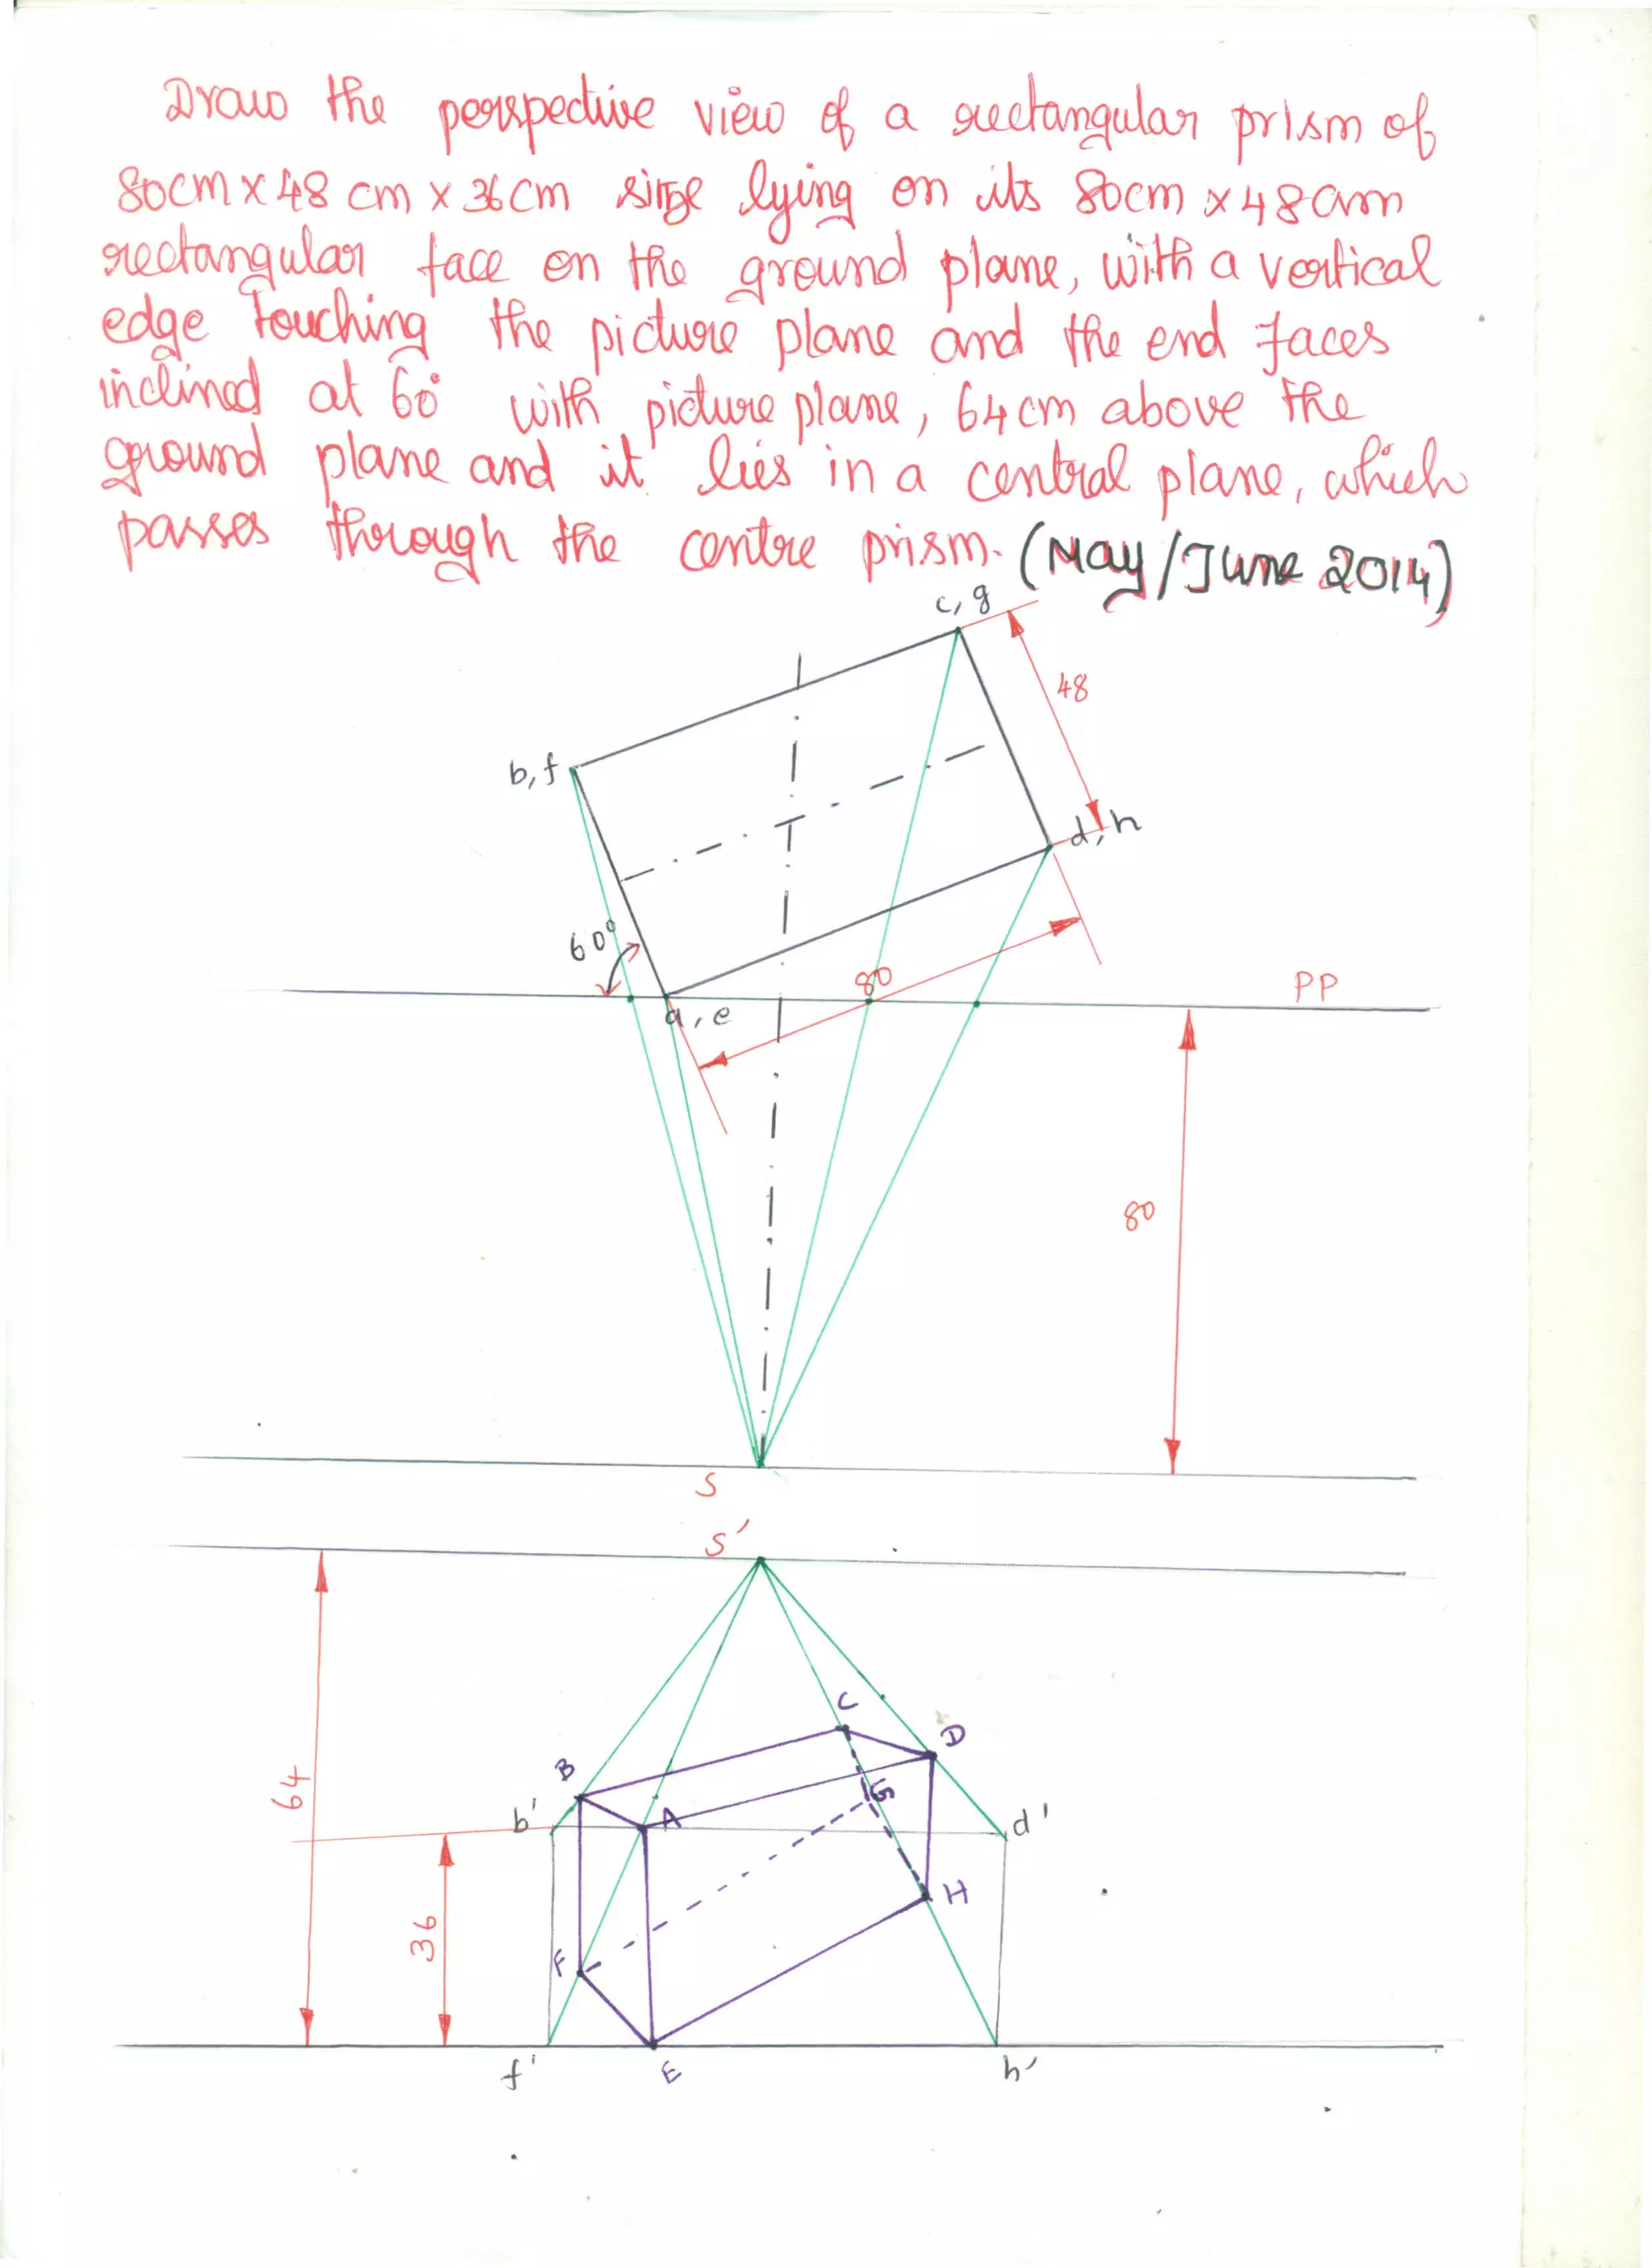 Draw the perspective view of a rectangular prism of
80cm x 48 cm x 36cm size lying on its 80cm x 48cm
rectangular face on the ground plane, with a vertical
edge touching the picture plane and the end faces
inclined at 60° with picture plane, 64cm above the
ground plane and it lies in a central plane, which
passes through the centre prism. (May/June 2014)
c, g
48
b, f
d, h
60°
80
PP
a, e
80
S
S'
C
D
B
64
b'
A
G
d'
36
H
F
f'
E
h'